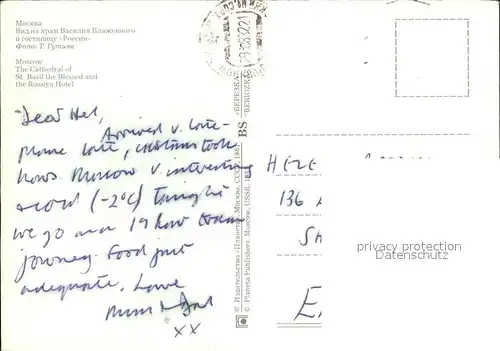 Москва
Вид на храм Василия Блаженного
и гостиницу «Россия»
Фото Т. Гутина
Moscow
The Cathedral of
St. Basil the Blessed and
the Rossiya Hotel
Dear Hel,
Arrived v. late –
plane late, customs took
hours. Moscow v interesting
& cold (-2°C) Tonight
we go on a 19 hour train
journey. Food just
adequate, Love
Mum & Dad
XX
© Издательство «Планета», Москва, СССР, 198
© Planeta Publishers, Moscow, USSR, 198
BS «БЕРЕЗКА»
BERIOZKA
HELE
136
SH
E.
privacy protection
Datenschutz